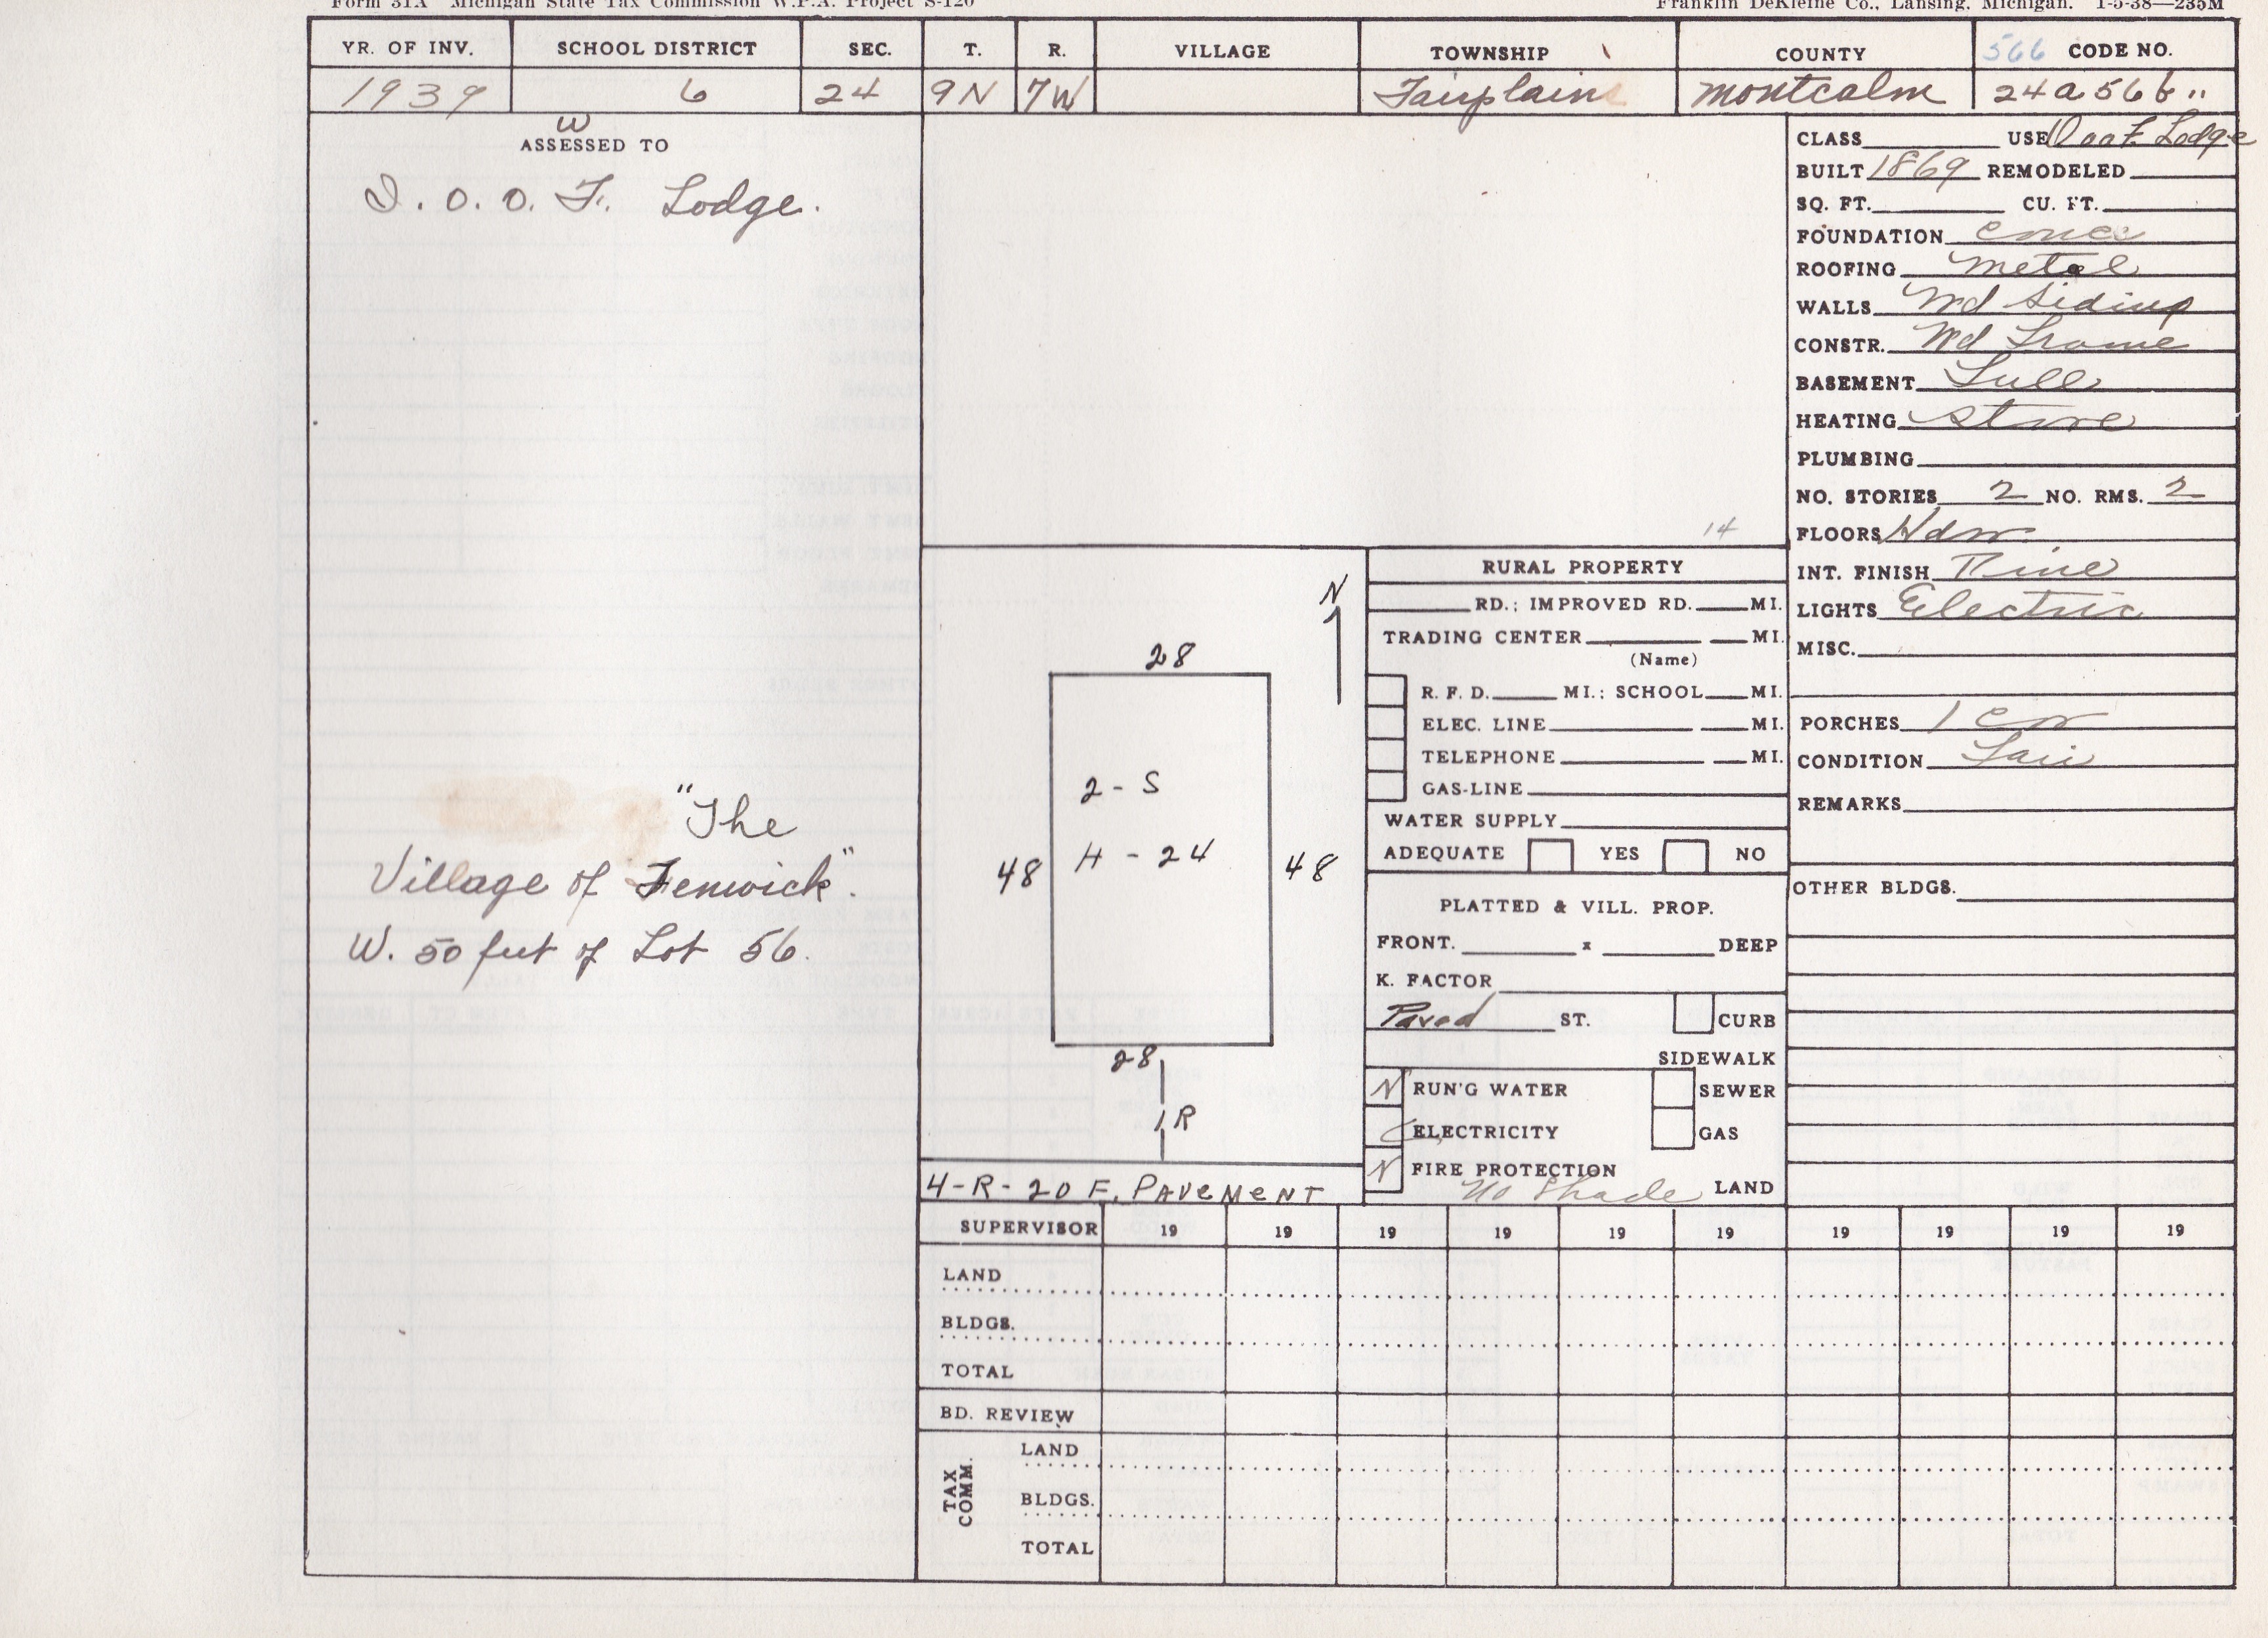 Form 31A Michigan State Tax Commission W.P.A. Project S-120 Franklin DeKleine Co., Lansing, Michigan. 1-5-38—235M
YR. OF INV. SCHOOL DISTRICT SEC. T. R. VILLAGE TOWNSHIP COUNTY 566 CODE NO.
1939 6 24 9N 7W Fairplains Montcalm 24a56b"
W
ASSESSED TO
I.O.O.F. Lodge.
"The
Village of Fenwick".
W. 50 feet of Lot 56.
14
N
28
2-S
H-24
48 48
28
1R
4-R-20 F. PAVEMENT
RURAL PROPERTY
RD.; IMPROVED RD. MI.
TRADING CENTER MI.
(Name)
R. F. D. MI.; SCHOOL MI.
ELEC. LINE MI.
TELEPHONE MI.
GAS-LINE
WATER SUPPLY
ADEQUATE YES NO
PLATTED & VILL. PROP.
FRONT. x DEEP
K. FACTOR
Paved ST. CURB
SIDEWALK
N RUN'G WATER SEWER
ELECTRICITY GAS
N FIRE PROTECTION
No Shade LAND
CLASS USE IOOF. Lodge
BUILT 1869 REMODELED
SQ. FT. CU. FT.
FOUNDATION Conc
ROOFING Metal
WALLS Wd Siding
CONSTR. Wd Frame
BASEMENT Full
HEATING Stove
PLUMBING
NO. STORIES 2 NO. RMS. 2
FLOORS Hdw
INT. FINISH Pine
LIGHTS Electric
MISC.
PORCHES 1 C
CONDITION Fair
REMARKS
OTHER BLDGS.
SUPERVISOR 19 19 19 19 19 19 19 19 19 19
LAND
BLDGS.
TOTAL
BD. REVIEW
TAX COMM.
LAND
BLDGS.
TOTAL